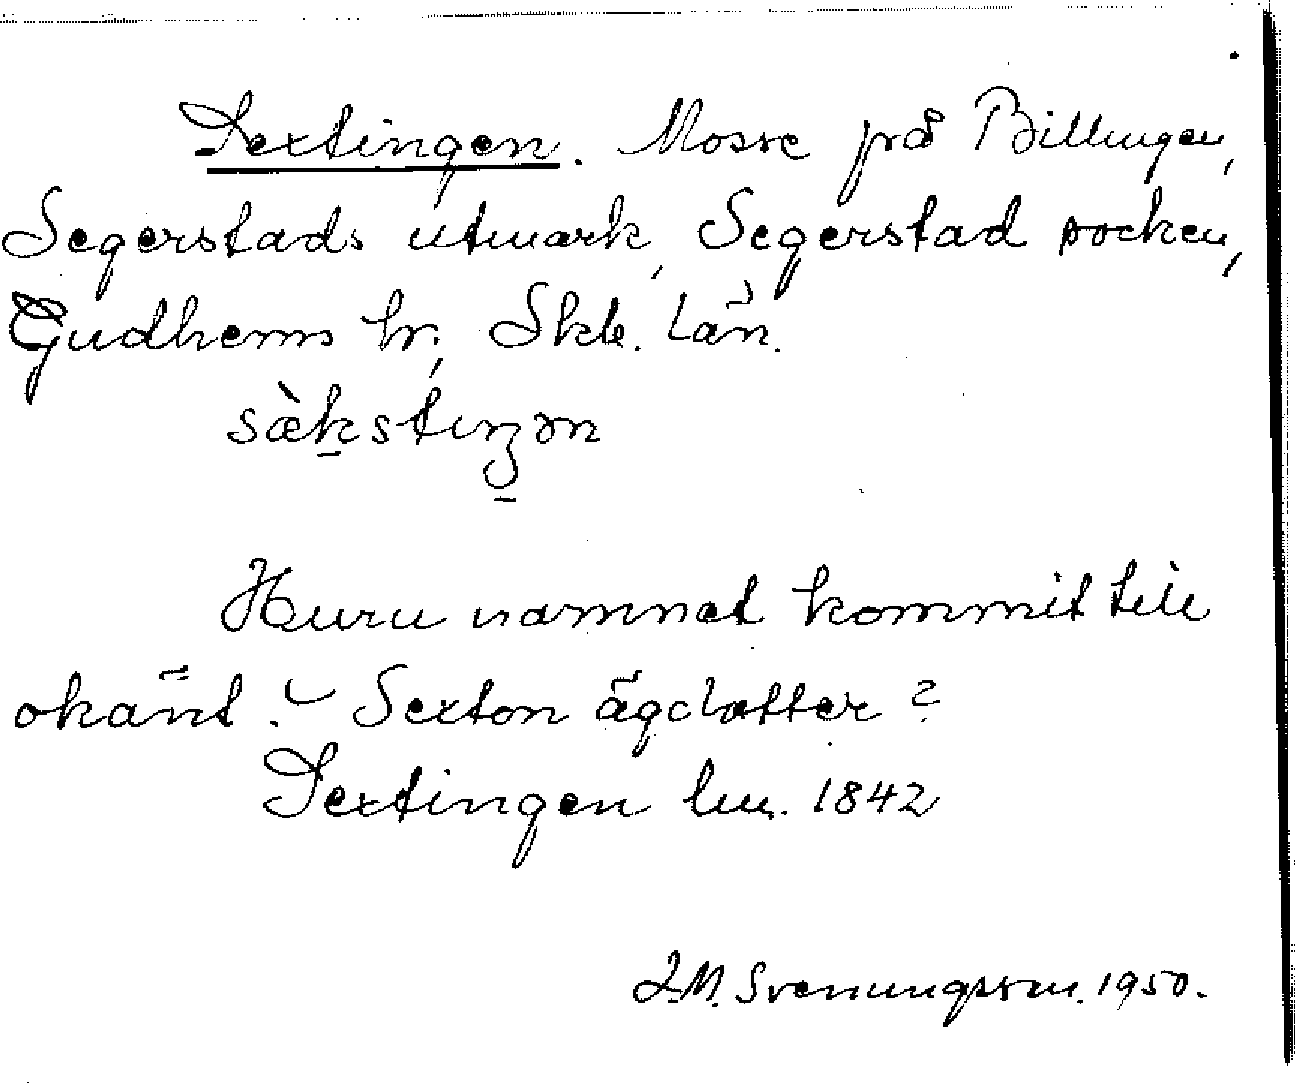 Sextingen. Mosse på Billingen,
Segerstads utmark, Segerstad socken,
Gudhems hr, Skb. län.
sàkstiŋən
Huru namnet kommit till
okänt. – Sexton ägolotter?
Sextingen lm. 1842
Svenungsson. 1950.